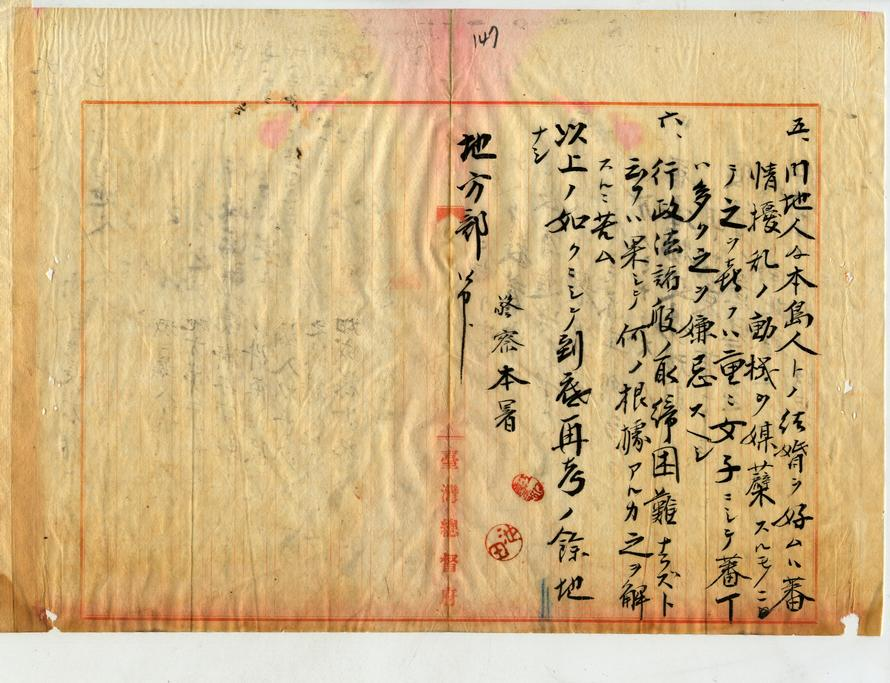 147
五、内地人ト本島人トノ結婚ヲ好ムハ蕃
情擾乱ノ動機ヲ媒蘖スルモノニ
テ之ヲ喜フハ重ニ女子ニシテ蕃丁
ハ多ク之ヲ嫌忌スヘシ
六、行政法諸般ノ取締困難ナラズト
云フハ果シテ何ノ根據アルカ之ヲ解
スルニ苦ム
以上ノ如クニシテ到底再考ノ餘地
ナシ
警察本署
地方部
臺灣總督府